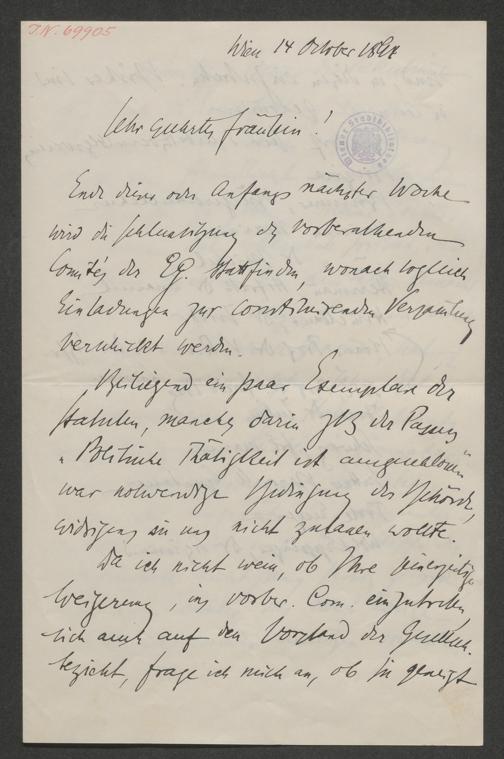 I.N. 69905
Wien 14 October 189
Sehr geehrtes Fräulein!
Wiener Stadtbibliothek
Ende dieser oder Anfangs nächster Woche
wird die Schlussitzung des vorberathenden
Comités der EG. stattfinden, wonach sogleich
Einladungen zur constituirenden Versammlung
verschickt werden.
Beiliegend ein paar Exemplare der
Statuten, manches darin zB der Passus
„Politische Thätigkeit ist ausgeschlossen"
war notwendige Bedingung der Behörde,
widrigens sie uns nicht zulassen wollte.
Da ich nicht weiss, ob Ihre seinerzeitige
Weigerung, ins vorber. Com. einzutreten,
sich auch auf den Vorstand der Gesellsch.
bezieht, frage ich mich an, ob Sie geneigt